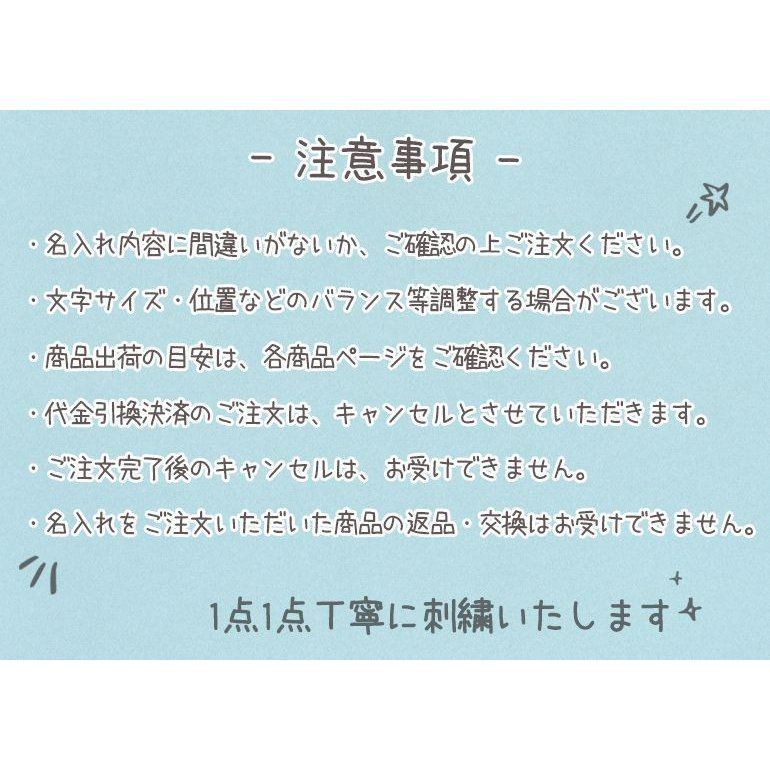 - 注意事項 -
・名入れ内容に間違いがないか、ご確認の上ご注文ください。
・文字サイズ・位置などのバランス等調整する場合がございます。
・商品出荷の目安は、各商品ページをご確認ください。
・代金引換決済のご注文は、キャンセルとさせていただきます。
・ご注文完了後のキャンセルは、お受けできません。
・名入れをご注文いただいた商品の返品・交換はお受けできません。
1点1点丁寧に刺繍いたします